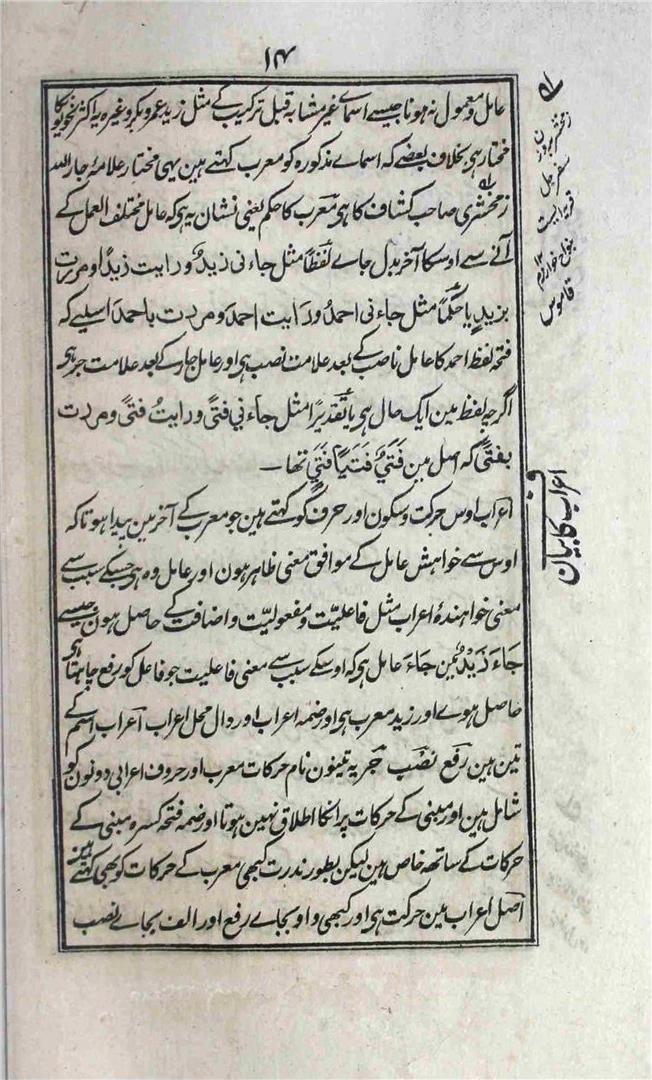 ۱۴
عامل و معمول نہ ہونا جیسے اسمای غیر مشابہ قبل ترکیب کے مثل زید عمرو بکر وغیرہ یہ اکثر نحویونکا
مختار ہی بخلاف بعضے کہ اسماے مذکورہ کو معرب کہتے ہین یہی مختار علامۂ جار اللہ
زمخشری صاحب کشاف کا ہی معرب کا حکم یعنی نشان یہ ہی کہ عامل مختلف العمل کے
آنے سے اوسکا آخر بدل جاے لفظاً مثل جاءنی زیدٌ ورایت زیداً ومررت
بزیدٍ یا حکماً مثل جاءنی احمدُ ورایت احمدَ ومررت باحمدَ اسلیے کہ
فتحہ لفظ احمد کا عامل ناصب کے بعد علامت نصب ہی اور عامل جار کے بعد علامت جر ہی
اگرچہ لفظ مین ایک حال ہی یا تقدیراً مثل جاءنی فتیً ورایتُ فتیً ومررت
بفتیً کہ اصل مین فَتَیٌ فَتَیاً فَتَیٍ تھا —
اعراب اوس حرکت و سکون اور حرف کو کہتے ہین جو معرب کے آخر مین پیدا ہو تاکہ
اوس سے خواہش عامل کے موافق معنی ظاہر ہون اور عامل وہ ہی جسکے سبب سے
معنی خواہندۂ اعراب مثل فاعلیّت و مفعولیّت و اضافت کے حاصل ہون جیسے
جَاءَ زَیْدٌ مین جَاءَ عامل ہی کہ اوسکے سبب سے معنی فاعلیت جو فاعل کو رفع چاہتا ہی
حاصل ہوے اور زید معرب ہی اور ضمہ اعراب اور دال محل اعراب اعراب اسم کے
تین ہین رفع نصب جر یہ تینون نام حرکات معرب اور حروف اعرابی دونون کو
شامل ہین اور مبنی کے حرکات پر انکا اطلاق نہین ہوتا اور ضمہ فتحہ کسرہ مبنی کے
حرکات کے ساتھ خاص ہین لیکن بطور ندرت کبھی معرب کے حرکات کو بھی کہتے ہین
اصل اعراب مین حرکت ہی اور کبھی واو بجاے رفع اور الف بجاے نصب
زمخشر بروزن
سفرجل
قریہ ایست
بنواح خوارزم ۱۲
قاموس
اعراب کا بیان